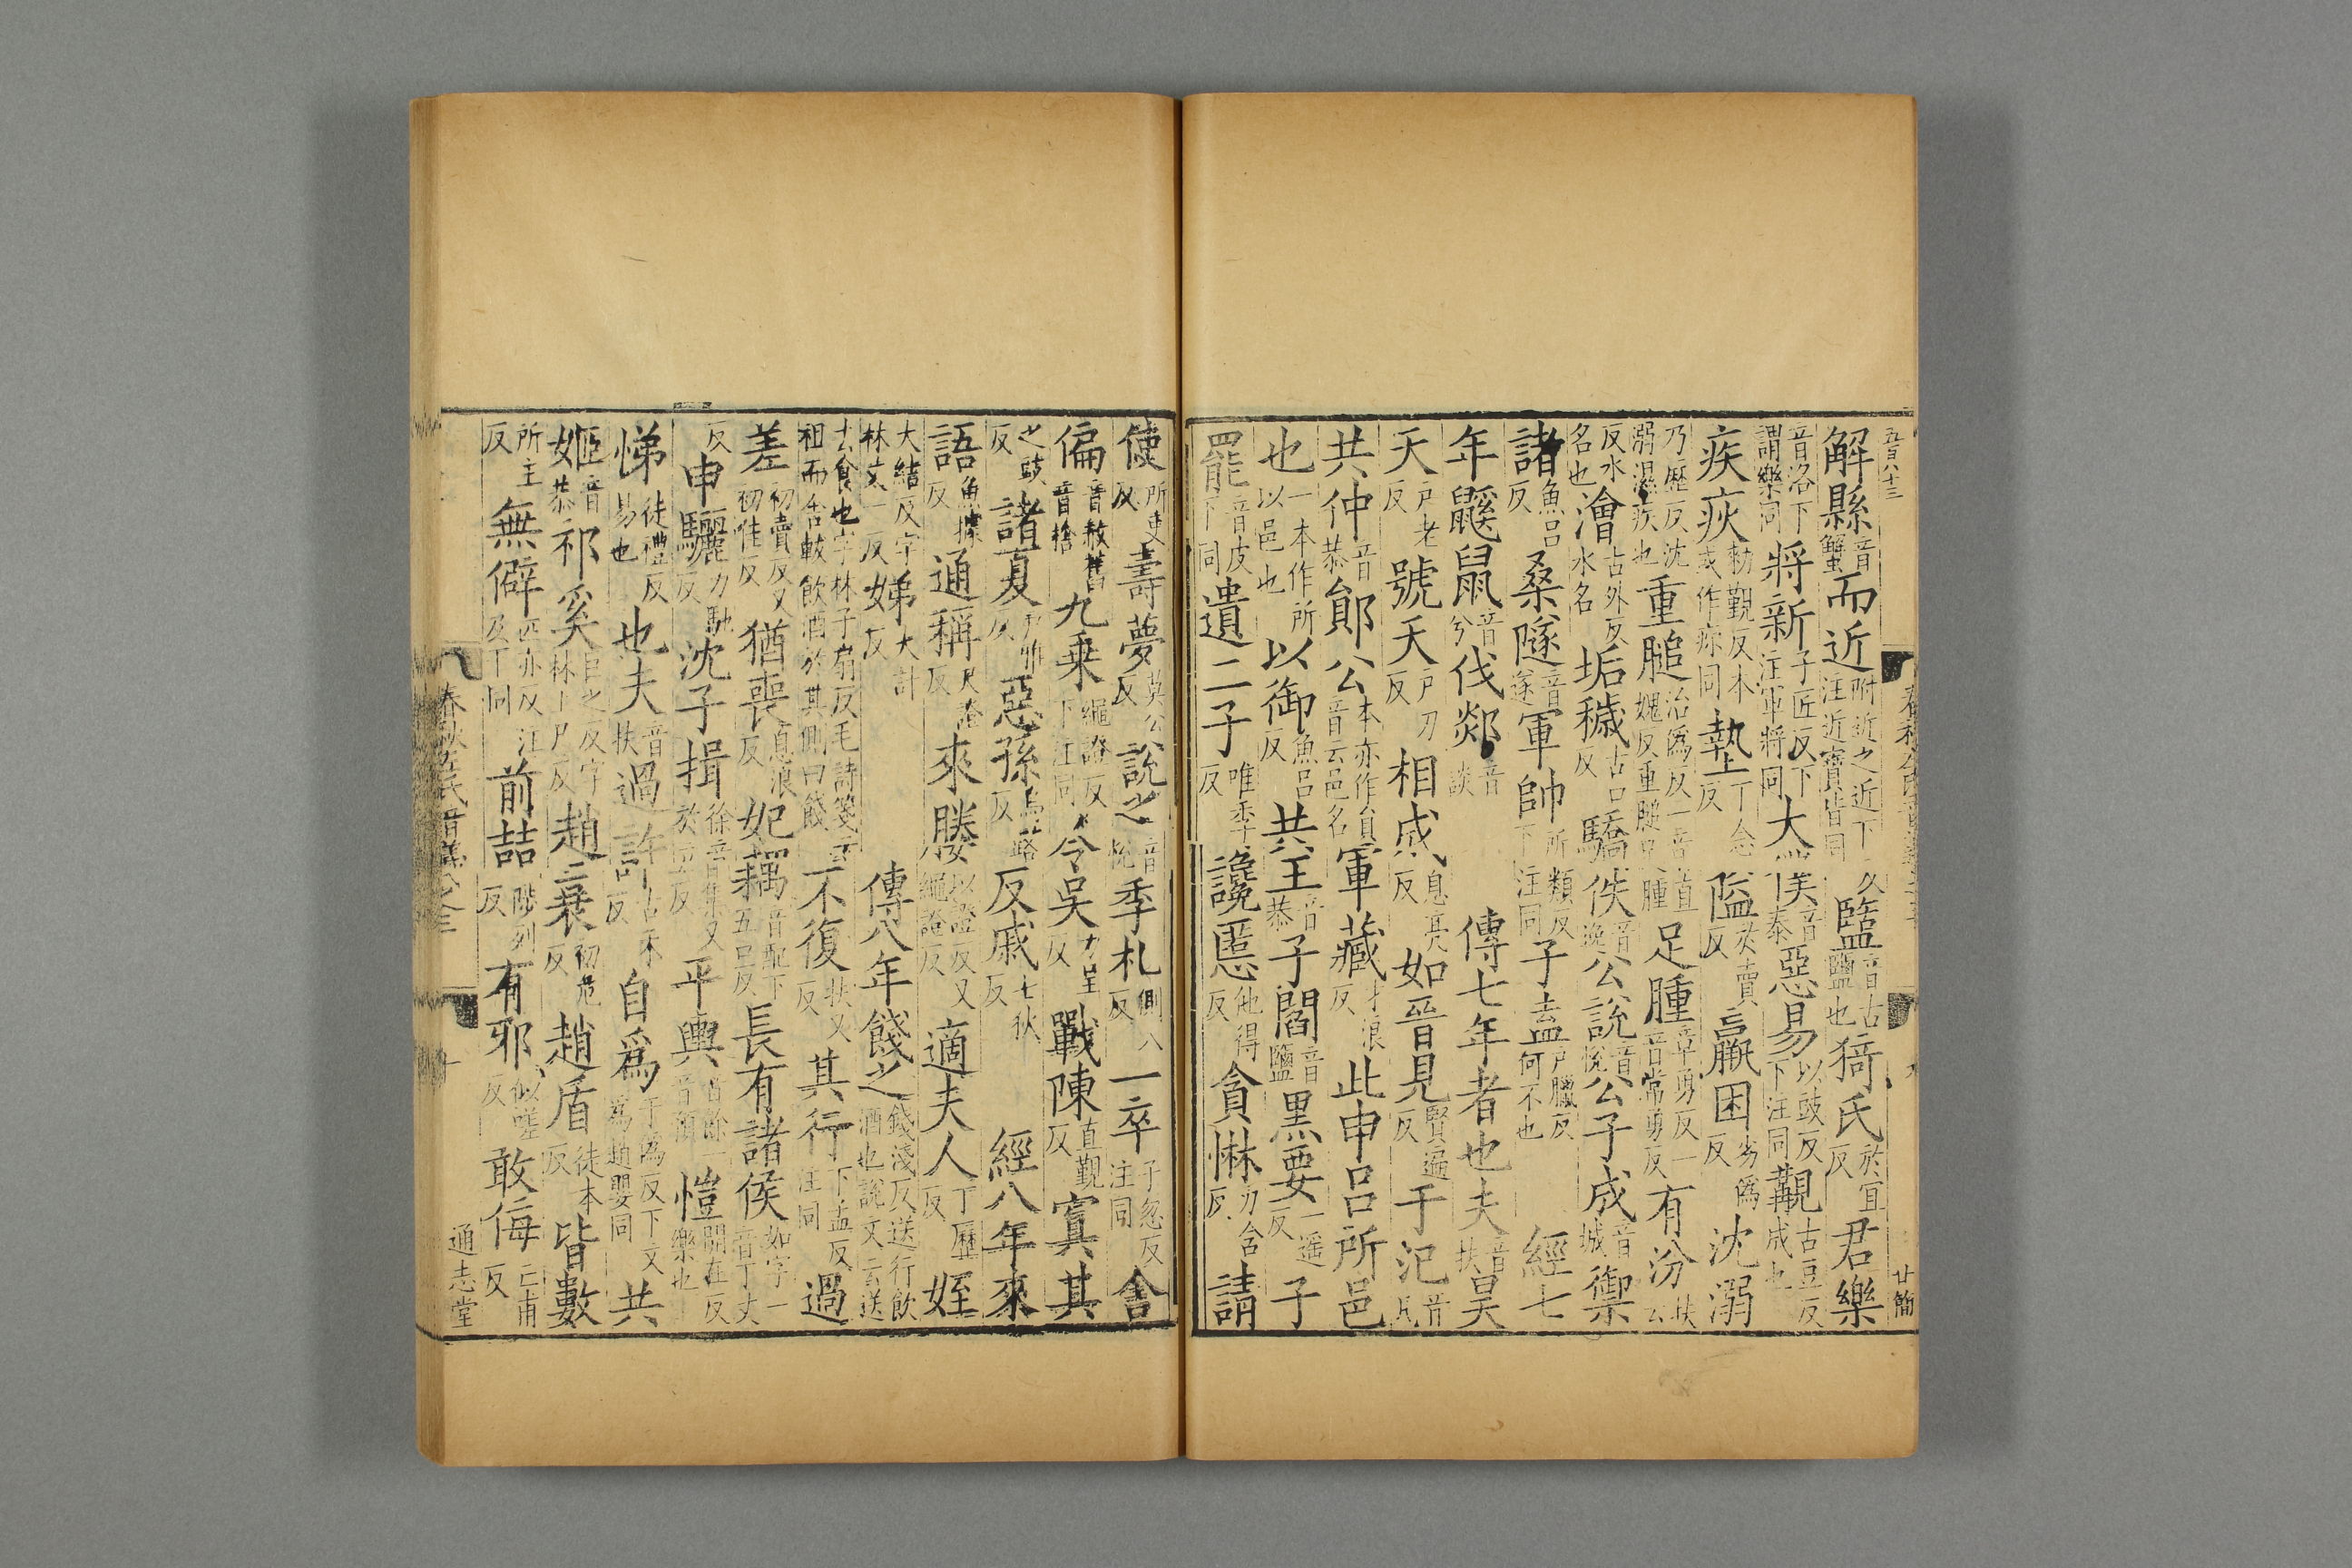 五百八十三
解縣音蟹而近附近之近下注近寶皆同久盬音古鹽也猗氏於宜反君樂
音洛下謂樂同將新子匠反下注軍將同大音泰惡易以豉反下注同覯古豆反成也
疾疢勑覲反本或作疹同墊丁念反隘於賣反羸困劣僞反沈溺
乃歷反沈溺濕疾也重膇治僞反一音直媿反重膇足腫足腫章勇反一音常勇反有汾扶云
反水名也澮古外反水名垢穢古口反驕佚音逸公說音悅公子成音城禦
諸魚呂反桑隧音遂軍帥所類反下注同子盍戶臘反何不也經七
年鼷鼠音兮伐郯音談傳七年者也夫音扶昊
天戶老反號天戶刀反相烕息亮反如晉見賢遍反于汜音凡
共仲音恭鄖公本亦作員音云邑名軍藏才浪反此申呂所邑
也一本作所以邑也以御魚呂反共王音恭子閻音鹽黑要一遥反子
罷音皮下同遺二子唯季反讒慝他得反貪惏力含反請
使所吏反壽夢莫公反說之音悅季札側八反一卒子忽反注同舍
偏音赦舊音捨九乘繩證反下注同令吳力呈反戰陳直覲反寘其
之豉反諸夏戶雅反惡孫烏路反反戚七狄反經八年來
語魚據反通稱尺證反來媵以證反又繩證反適夫人丁歷反姪
大結反字林丈一反娣大計反傳八年餞之錢淺反送行飲酒也說文云送
去食也字林子扇反毛詩箋云祖而舍軷飲酒於其側曰餞不復扶又反其行下孟反注同過
差初賣反又初佳反猶喪息浪反妃耦音配下五口反長有諸侯如字一音丁丈
反申驪力馳反沈子揖徐音集又於立反平輿音餘一音預愷開在反樂也
悌徒禮反易也也夫音扶過許古禾反自爲于僞反下文爲趙嬰同共
姬音恭祁奚巨之反字林上尸反趙衰初危反趙盾徒本反皆數
所主反無僻匹亦反注及下同前喆陟列反有邪似嗟反敢侮亡甫反
春秋左氏音義之三
通志堂